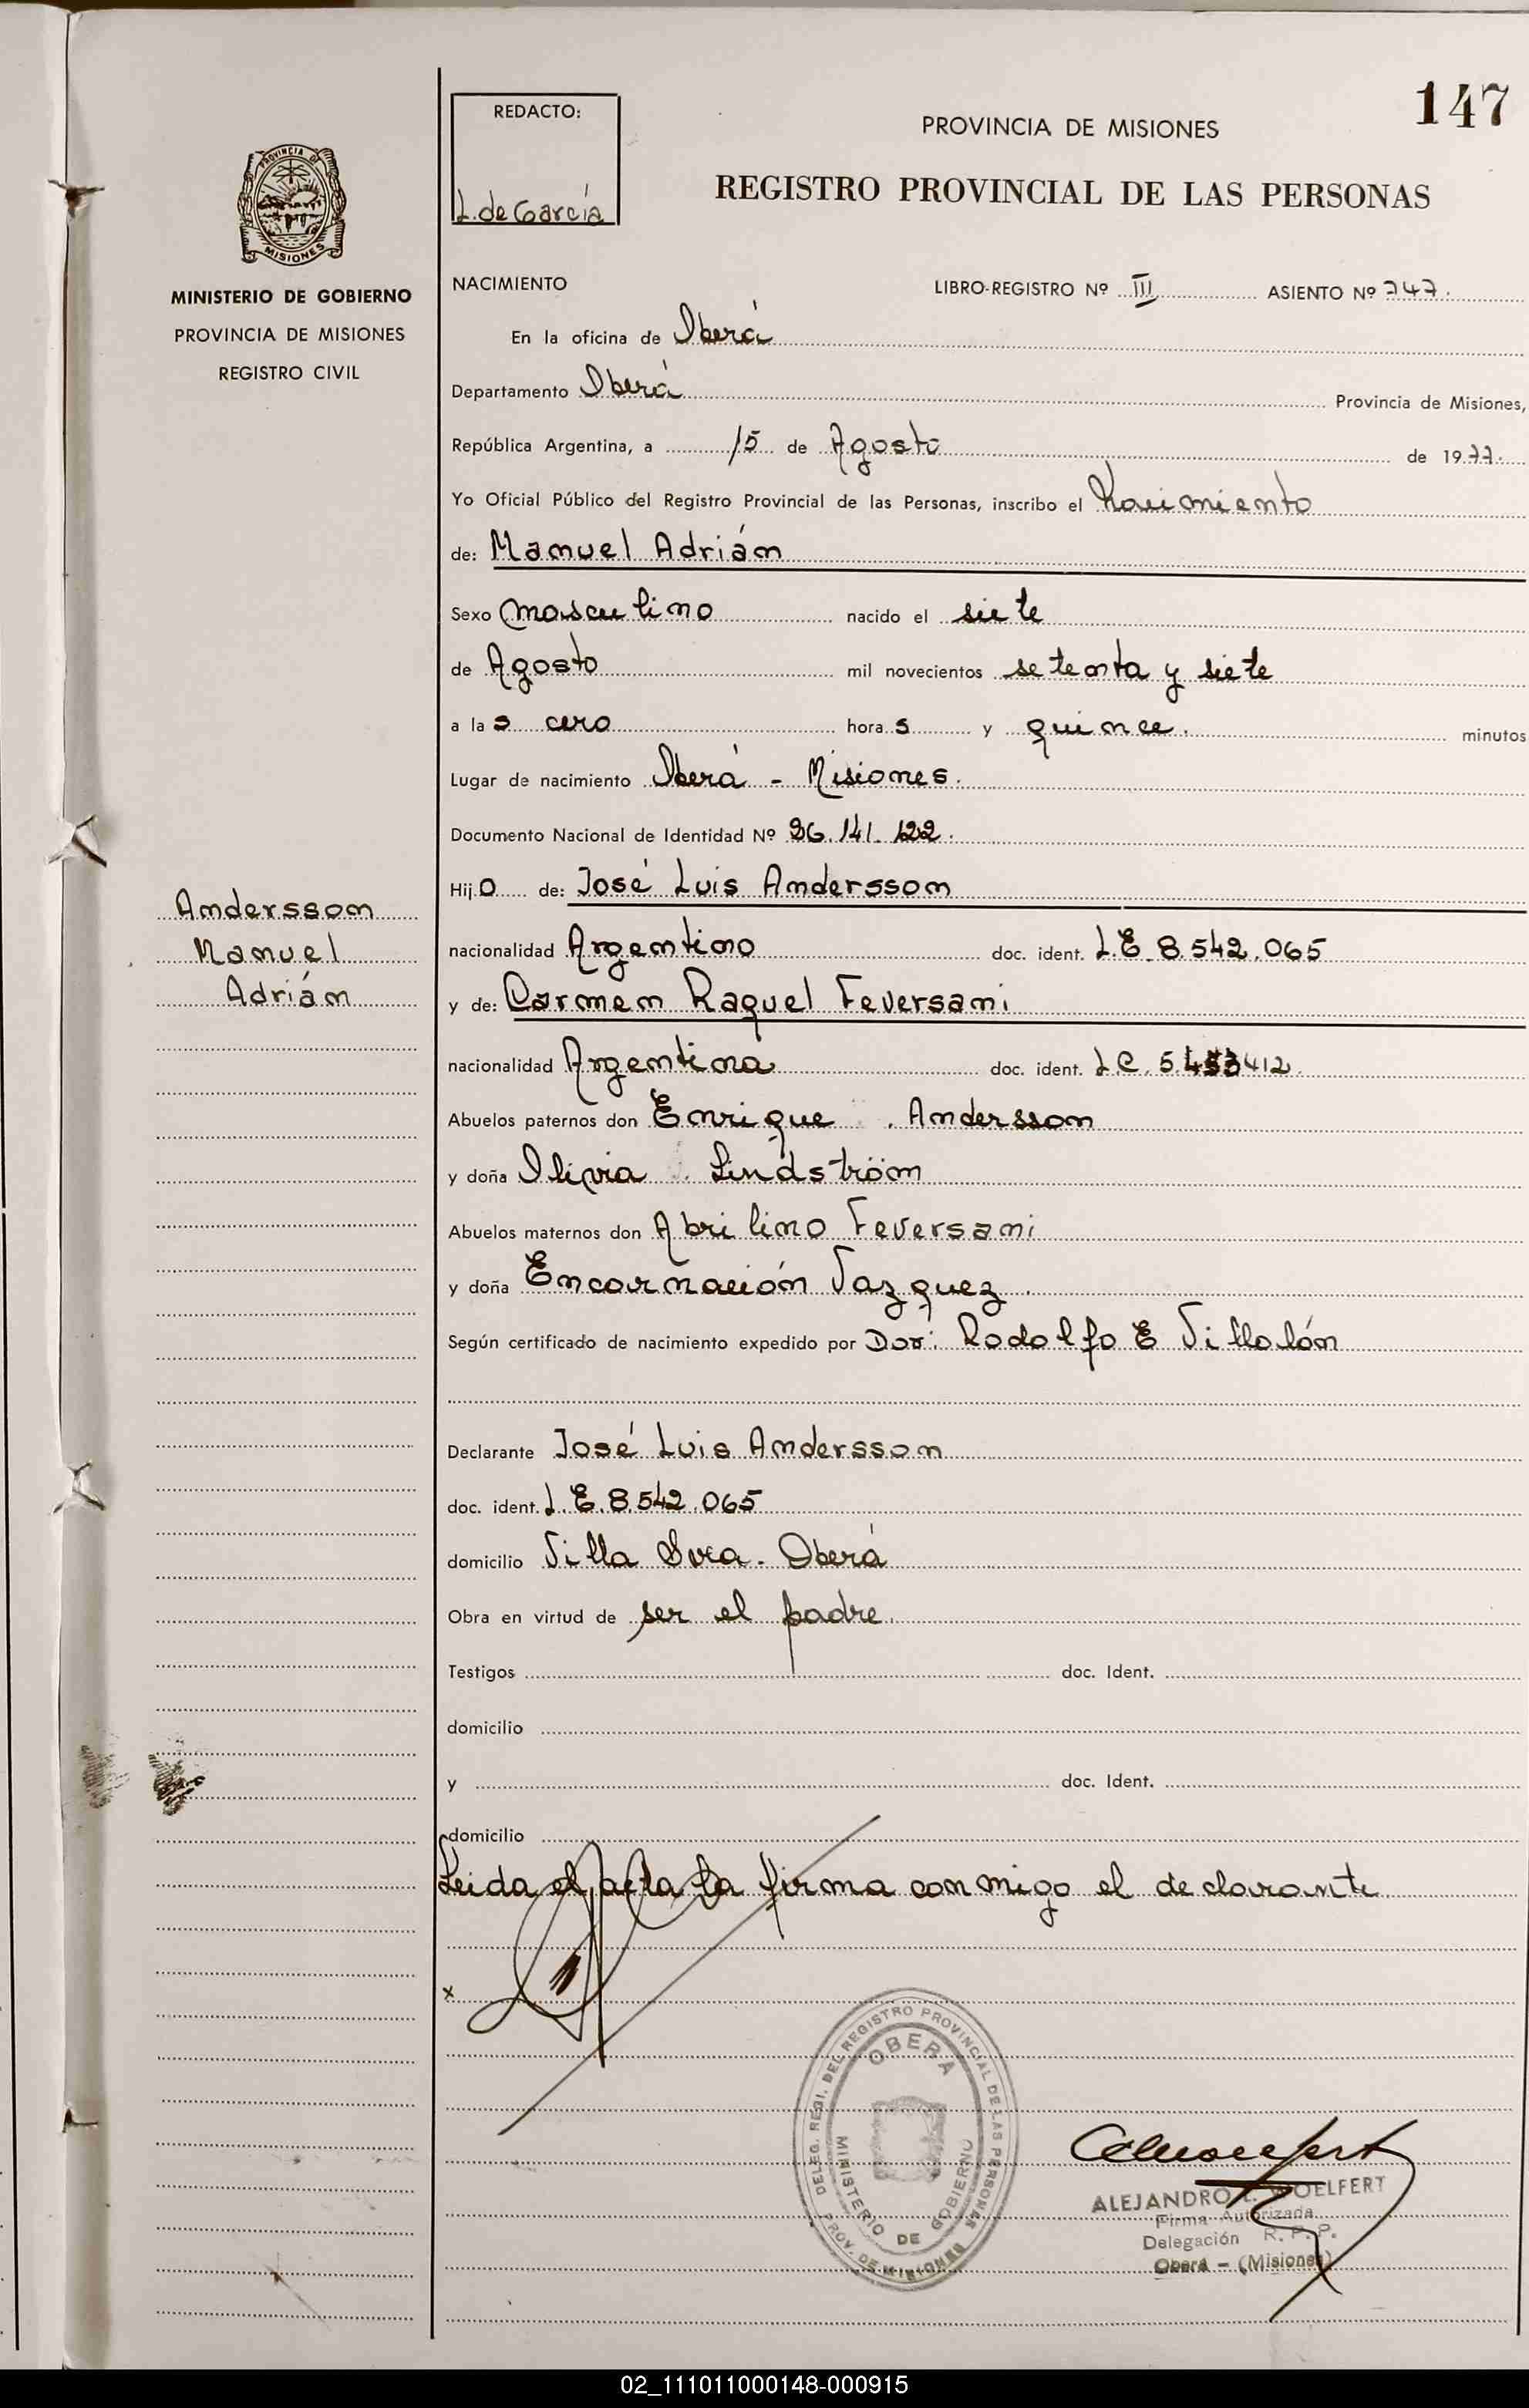 147
REDACTO:
L. de García
PROVINCIA DE MISIONES
REGISTRO PROVINCIAL DE LAS PERSONAS
PROVINCIA DE
MISIONES
MINISTERIO DE GOBIERNO
PROVINCIA DE MISIONES
REGISTRO CIVIL
NACIMIENTO LIBRO-REGISTRO Nº III ASIENTO Nº 747.
En la oficina de Oberá
Departamento Oberá Provincia de Misiones,
República Argentina, a 15 de Agosto de 1977.
Yo Oficial Público del Registro Provincial de las Personas, inscribo el Nacimiento
de: Manuel Adrián
Sexo masculino nacido el siete
de Agosto mil novecientos setenta y siete
a las cero horas y quince. minutos
Lugar de nacimiento Oberá - Misiones.
Documento Nacional de Identidad Nº 26.141.122.
Hijo de: José Luis Andersson
Andersson
Manuel
Adrián
nacionalidad Argentino doc. ident. L.E. 8.542.065
y de: Carmen Raquel Feversani
nacionalidad Argentina doc. ident. L.C. 5.453412.
Abuelos paternos don Enrique . Andersson
y doña Olivia Lindström
Abuelos maternos don Abrilino Feversani
y doña Encarnación Vazquez.
Según certificado de nacimiento expedido por Dor: Rodolfo E Villalón
Declarante José Luis Andersson
doc. ident. L.E.8.542.065
domicilio Villa Svea. Oberá
Obra en virtud de ser el padre.
Testigos doc. Ident.
domicilio
y doc. Ident.
domicilio
Leida el acta la firma conmigo el declarante
x
DELEG. REGI. DEL REGISTRO PROVINCIAL DE LAS PERSONAS
OBERA
MINISTERIO DE GOBIERNO
PROV. DE MISIONES
ALEJANDRO L. WOELFERT
Firma Autorizada
Delegación R. P. P.
Oberá - (Misiones)
02_111011000148-000915